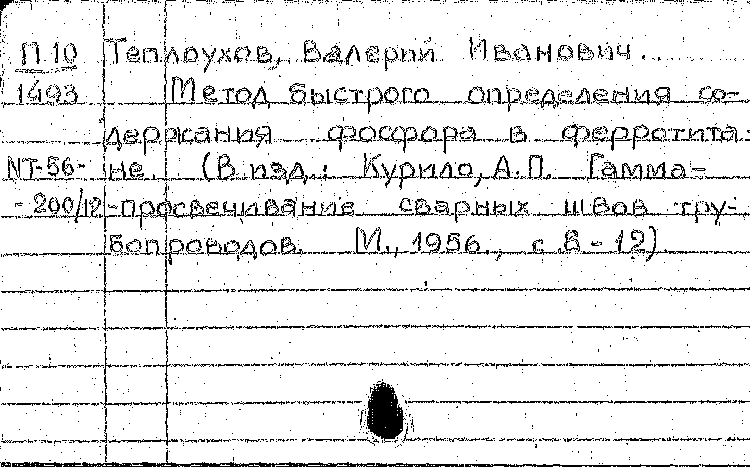 П 10 Теплоухов, Валерий Иванович.
1493 Метод быстрого определения со-
держания фосфора в ферротита-
NT-56- не. (В изд.: Курило, А.П. Гамма-
-200/12 -просвечивание сварных швов тру-
бопроводов. М., 1956., с 8-12)